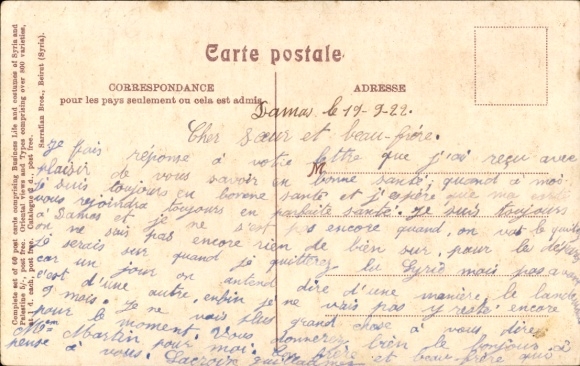 Complete set of 60 post cards comprising Business Life and costumes of Syria and
Palestine 5/-, post free. Oriental views and Types comprising over 800 varieties,
at 1 d. each, post free. Catalogue d., post free.
Sarrafian Bros., Beirut (Syria).
Carte postale
CORRESPONDANCE
pour les pays seulement ou cela est admis
ADRESSE
M
Damas le 19-9-22.
Cher Sœur et beau-frère.
Je fais réponse à votre lettre que j'ai reçu avec
plaisir de vous savoir en bonne santé, quand à moi
je suis toujours en bonne santé et j'espère que ma
vous rejoindra toujours en parfaite santé. Je suis toujours
à Damas et je ne s'est pas encore quand, on vat le quitter
on ne sais pas encore rien de bien sur, pour les
je serais sur quand je quitterez la Syrie mais pas
car un jour on entend dire d'une manière, le
c'est d'une autre, enfin je ne vais pas y resté encore
9 mois. Je ne vais plus grand chose à vous dire
pour le moment. Vous donnerez bien le bonjour à
Mme Martin pour moi. Ton frère et beau-frère qui
pense à vous. Lacroix